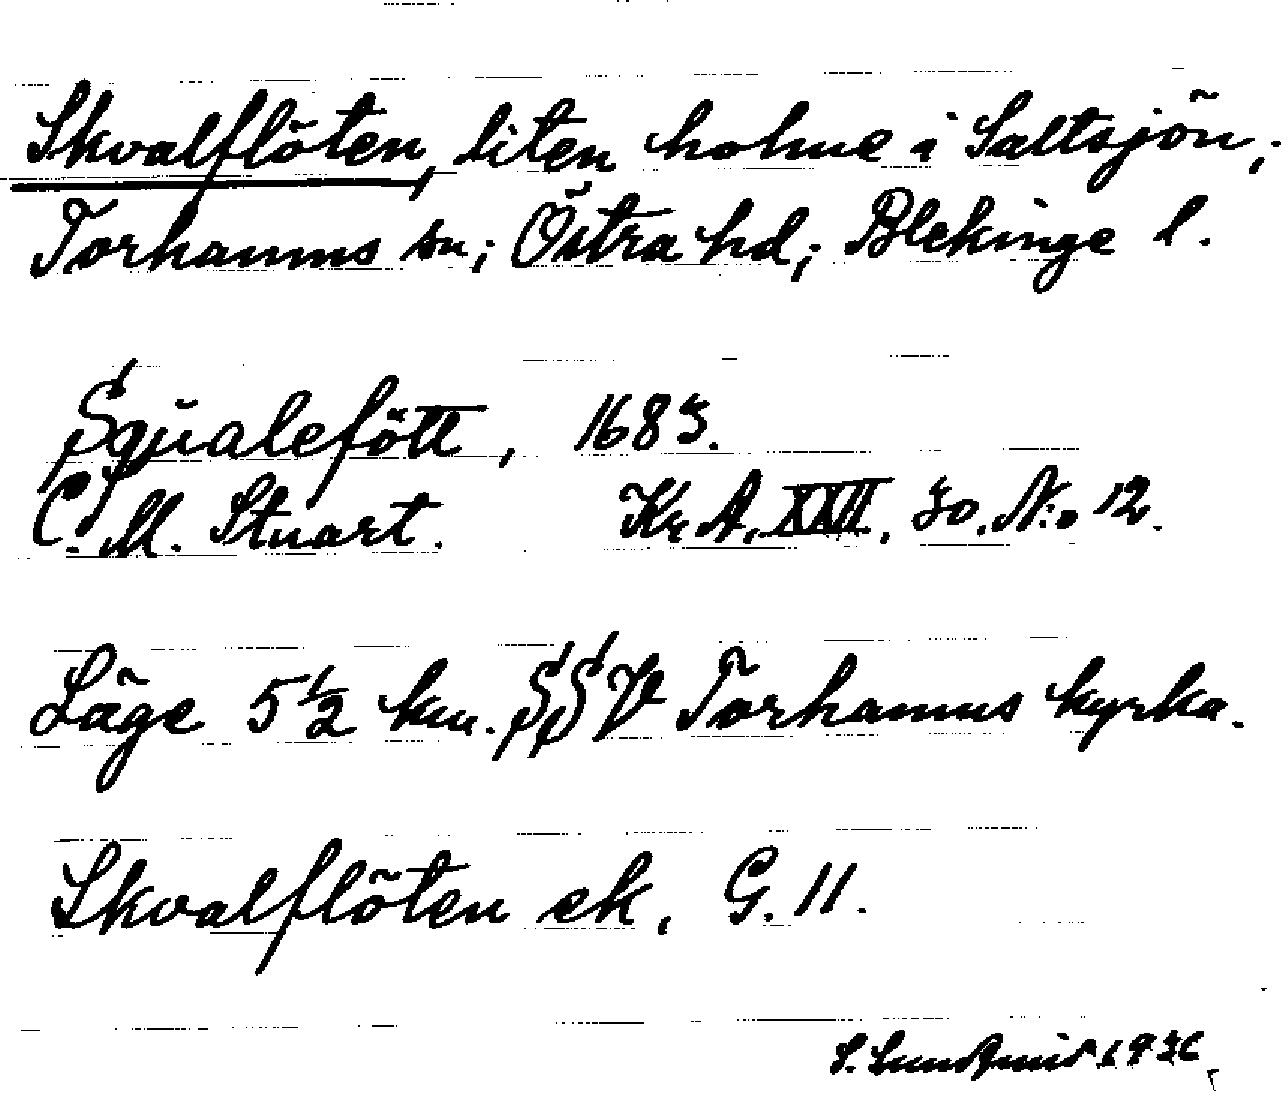 Skvalflöten, liten holme i Saltsjön;
Torhamns sn; Östra hd; Blekinge l.
Squalefött, 1683.
C. M. Stuart. Kr. A. XXII. 30. No 12.
Läge 5 1/2 km. SSV Torhamns kyrka.
Skvalflöten ek. G. 11.
S. Lundqvist 1936